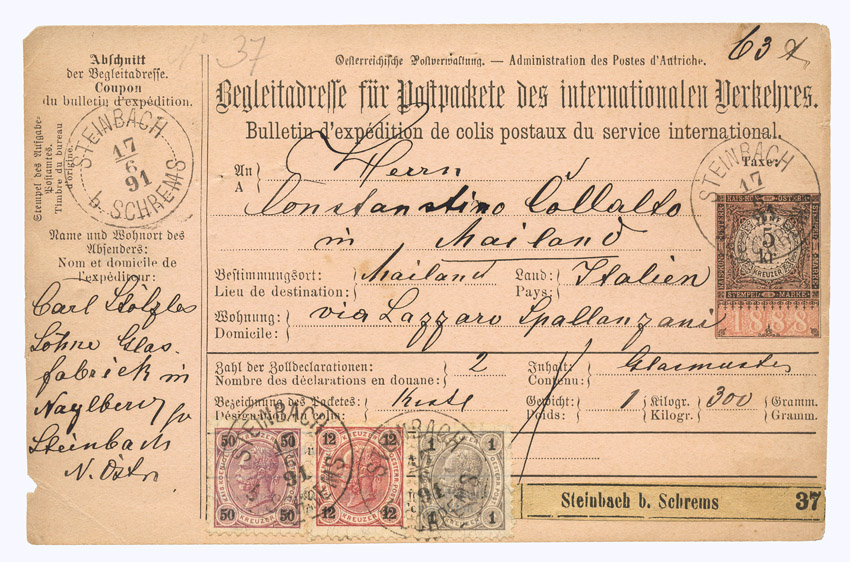 37
63
Abschnitt
der Begleitadresse.
Coupon
du bulletin d'expédition.
Stempel des Aufgabe-
Postamtes.
Timbre du bureau
d'origine.
STEINBACH
17
6
91
b. SCHREMS
Name und Wohnort des
Absenders:
Nom et domicile de
l'expéditeur:
Carl Stölzles
Söhne Glas-
fabrick in
Steinbach
N. Östr
Oesterreichische Postverwaltung. — Administration des Postes d'Autriche.
Begleitadresse für Postpackete des internationalen Verkehres.
Bulletin d'expédition de colis postaux du service international.
An
A
Herrn
Constantino Collalto
in Mailand
Taxe:
STEINBACH
17
5
KREUZER
STEMPEL MARKE
1888
Bestimmungsort: Mailand Land: Italien
Lieu de destination: Pays:
Wohnung: via Lazzaro Spallanzani
Domicile:
Zahl der Zolldeclarationen: 2 Inhalt: Glasmuster
Nombre des déclarations en douane: Contenu:
Bezeichnung des Packetes: Kiste Gewicht: 1 Kilogr. 300 Gramm.
Désignation du colis: Poids: Kilogr. Gramm.
50 50 12 12 1 1
STEINBACH
91
SCHREMS
50 KREUZER 50 12 KREUZER 12 1 KREUZER 1
Steinbach b. Schrems 37